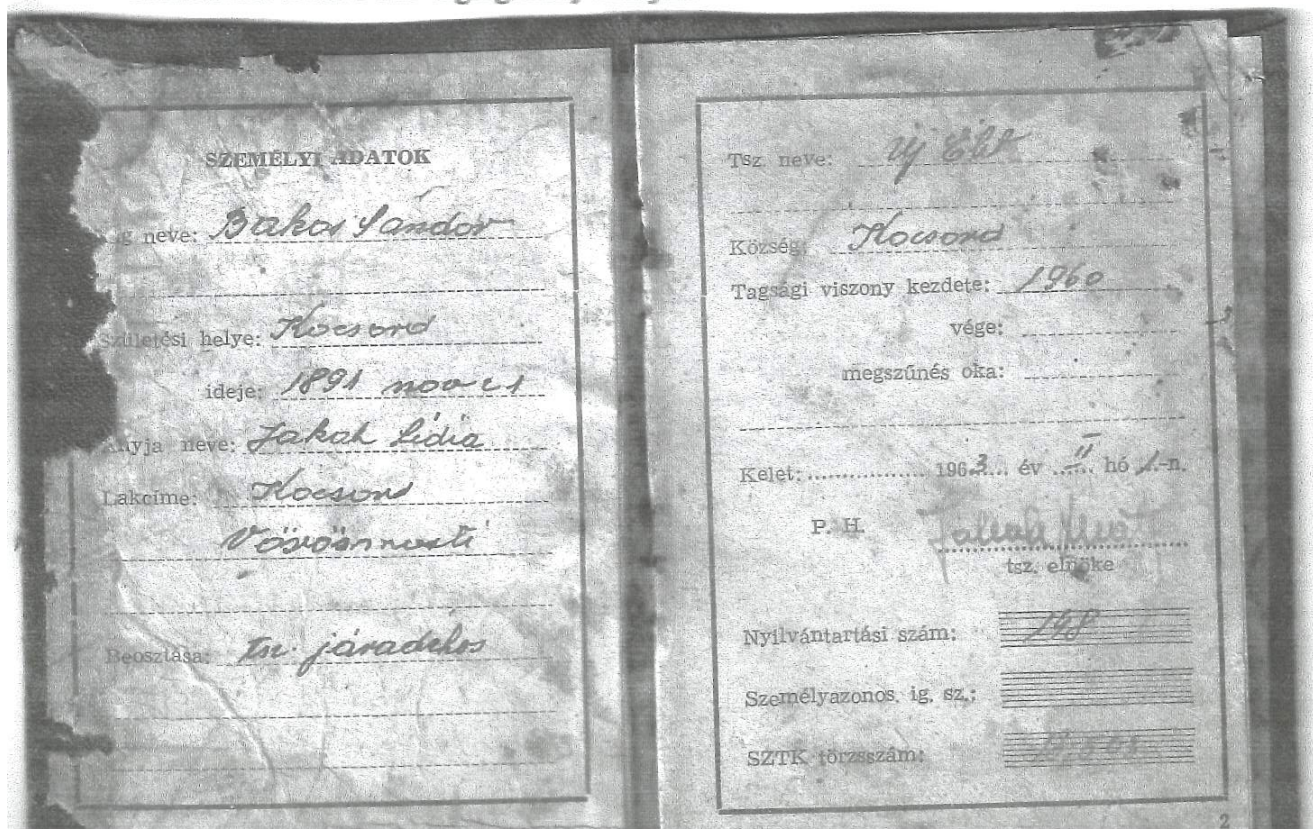 SZEMÉLYI ADATOK
g neve: Bakos Sándor
Születési helye: Kocsord
ideje: 1891 nov 21
nyja neve: Jakab Lídia
Lakcíme: Kocsord
Beosztása: Tsz. járadékos
Tsz neve: Új Élet
Község: Kocsord
Tagsági viszony kezdete: 1960
vége:
megszűnés oka:
Kelet: 1963 év II hó 1-n.
P. H.
tsz. elnöke
Nyilvántartási szám: 148
Személyazonos. ig. sz.:
SZTK törzsszám:
2